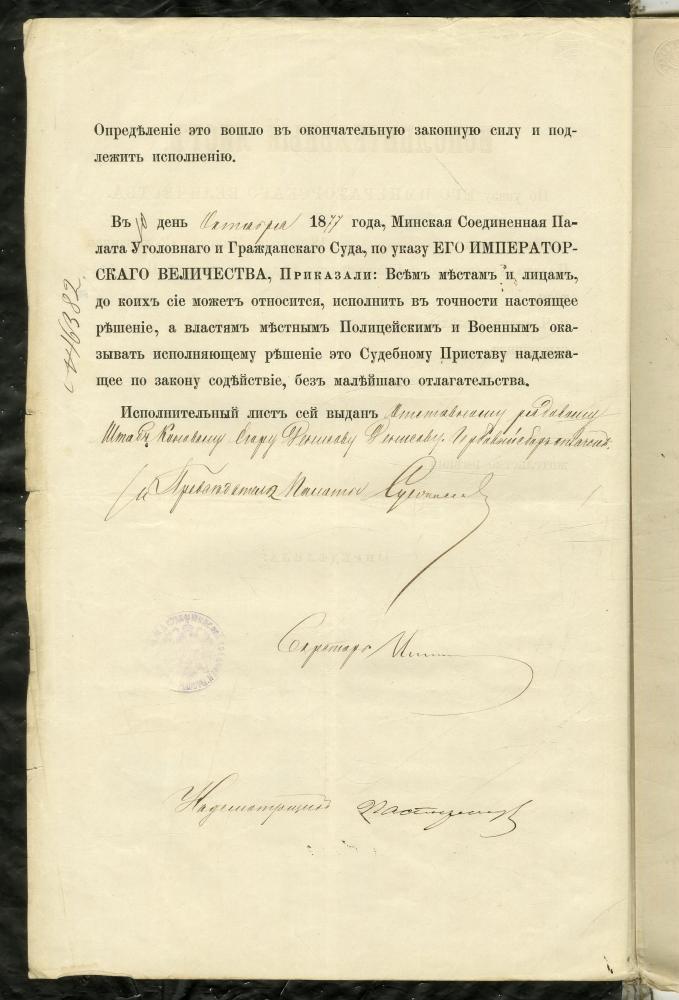 Опредѣленіе это вошло въ окончательную законную силу и под-
лежитъ исполненію.
Въ 10 день Октября 1877 года, Минская Соединенная Па-
лата Уголовнаго и Гражданскаго Суда, по указу ЕГО ИМПЕРАТОР-
СКАГО ВЕЛИЧЕСТВА, Приказали: Всѣмъ мѣстамъ и лицамъ,
до коихъ сіе можетъ относится, исполнить въ точности настоящее
рѣшеніе, а властямъ мѣстнымъ Полицейскимъ и Военнымъ ока-
зывать исполняющему рѣшеніе это Судебному Приставу надлежа-
щее по закону содѣйствіе, безъ малѣйшаго отлагательства.
№ 46382
Исполнительный листъ сей выданъ Отставному рядовому
Денисову
Предсѣдатель Палаты
Секретарь
Надсмотрщикъ